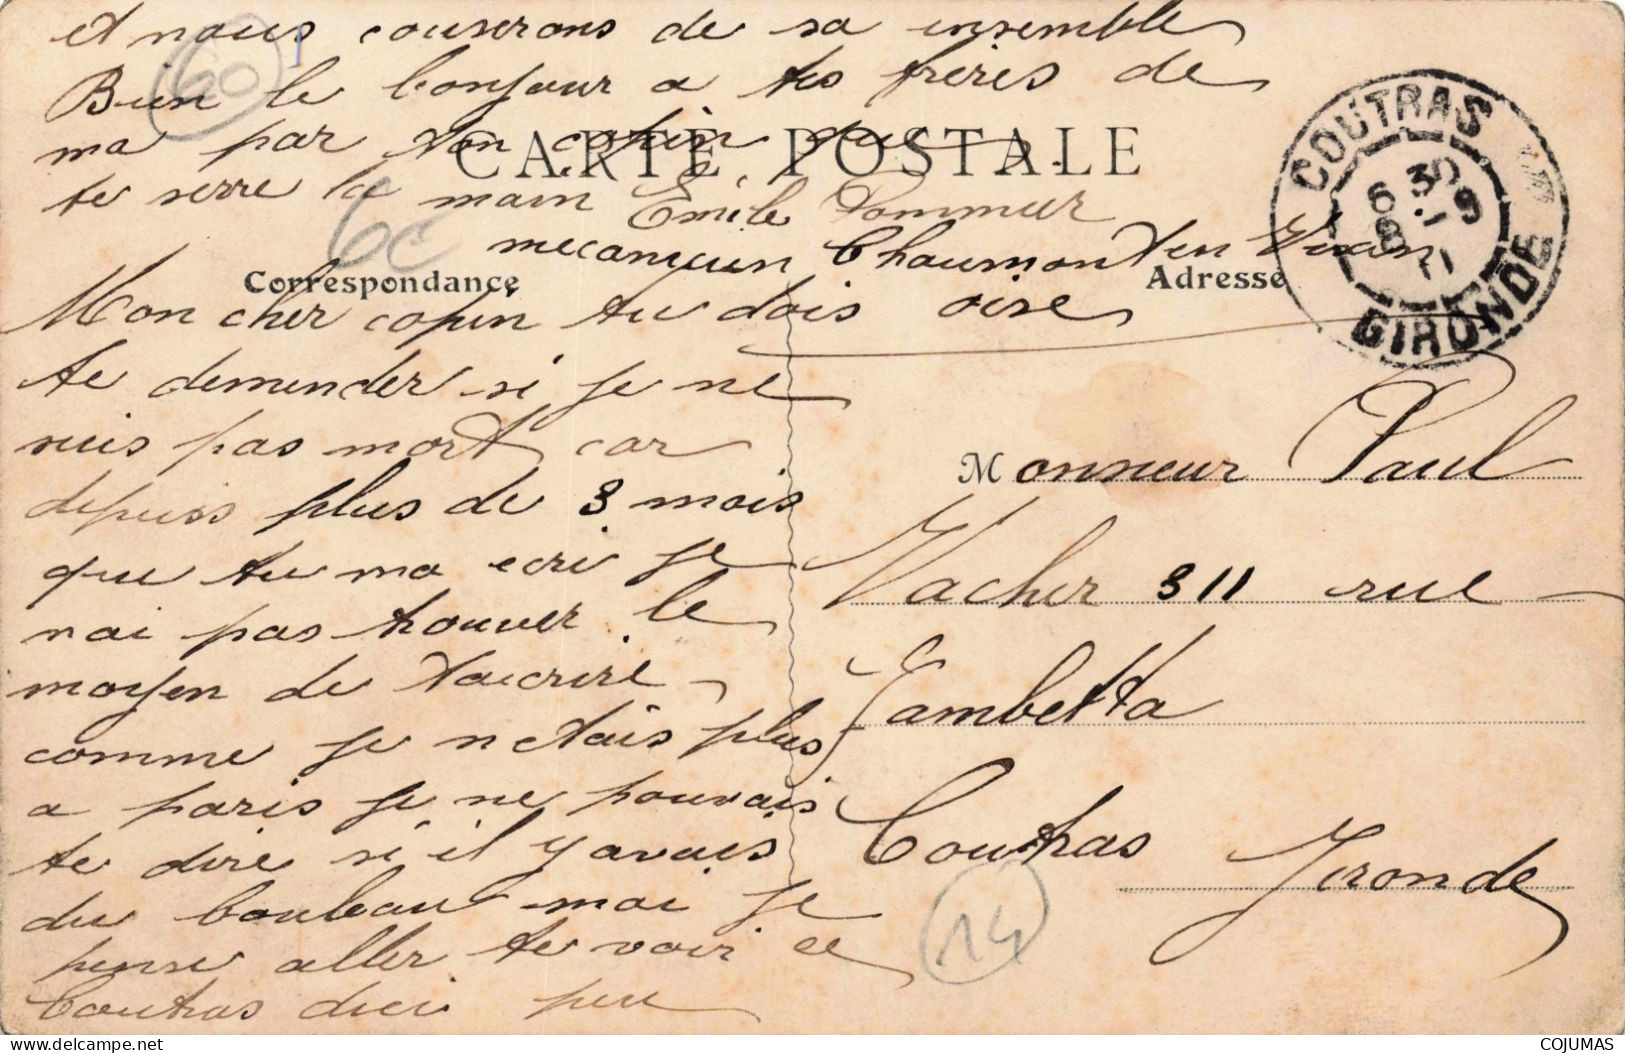 et nous couserons de sa ensemble
Bien le bonjour a tes frères de
ma par ton copin qui
te serre la main Emile Pommier
mecanicien Chaumont en Vexin
oise
CARTE POSTALE
Correspondance
Adresse
COUTRAS
6 30
8 - 9
11
GIRONDE
60
60
Mon cher copin tu dois
te demender si je ne
suis pas mort car
depuis plus de 3 mois
que tu ma ecri je
nai pas trouver le
moyen de taicrire
comme je netais plus
a paris je ne pouvais
te dire si il y avais
du bouleau moi je
pense aller te voir a
Coutras dici peu
Monsieur Paul
Vacher 311 rue
Gambetta
Coutras
Gironde
14
delcampe.net
COJUMAS